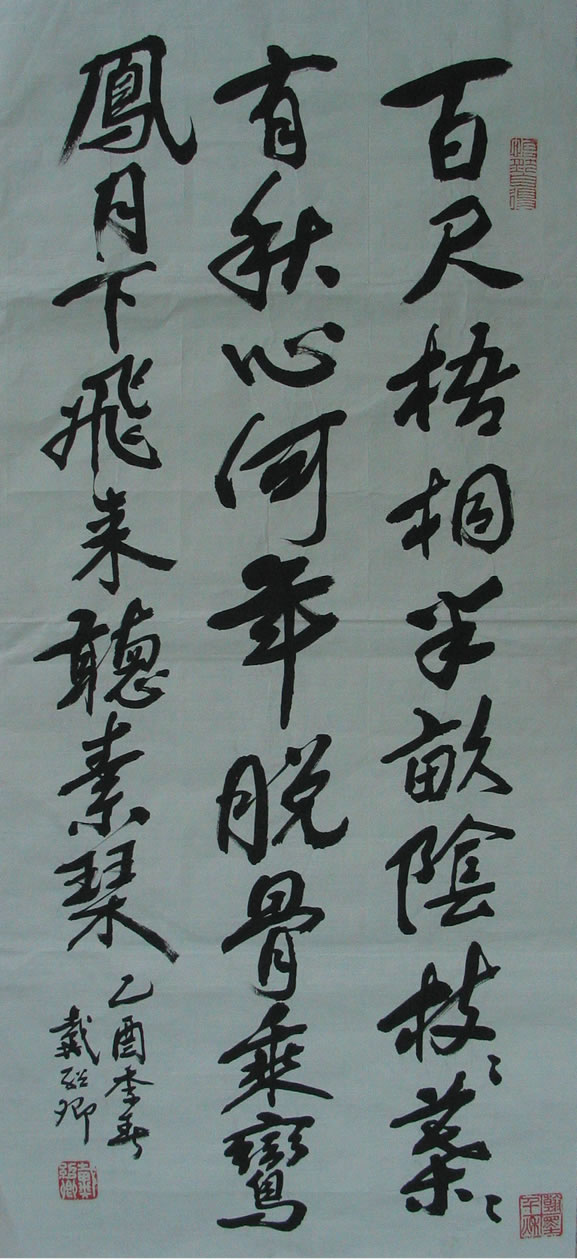 百尺梧桐半畝陰枝〻葉〻
有秋心何年脱骨乘鸞
鳳月下飛来聽素琴
乙酉季春
戴 卿